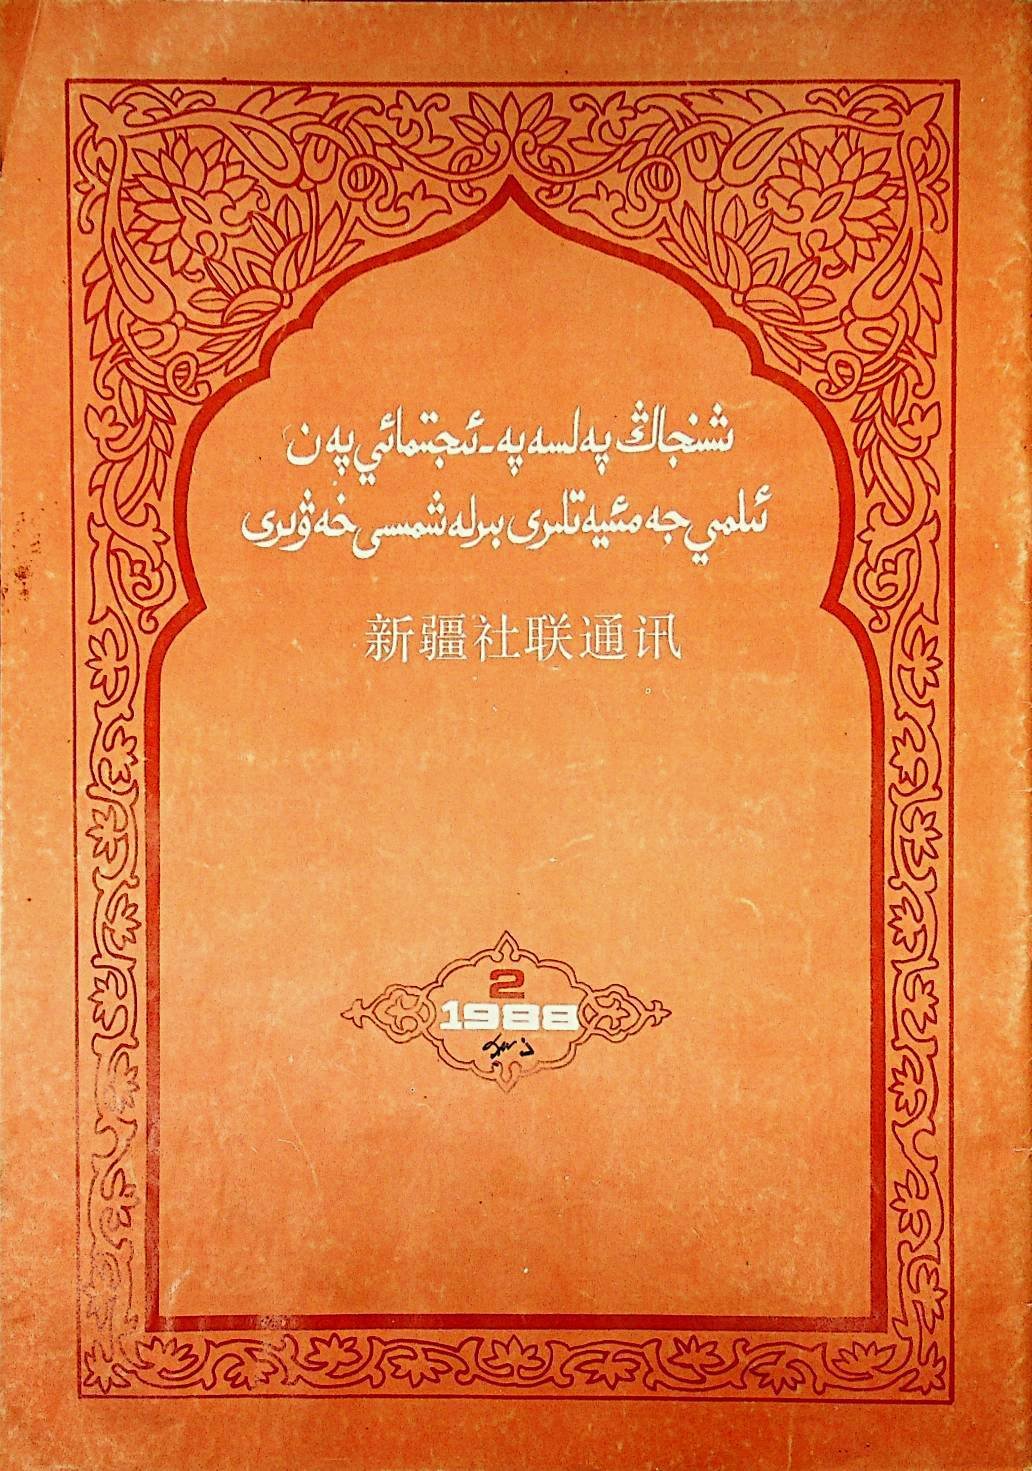 شىنجاڭ پەلسەپە-ئىجتىمائىي پەن
ئىلمىي جەمئىيەتلىرى بىرلەشمىسى خەۋىرى
新疆社联通讯
2
1988